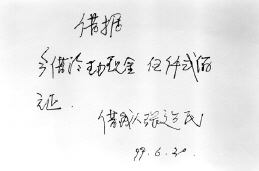 借据
今借洽 现金 伍仟贰佰
元正.
借款人 张 民
99.6.30.